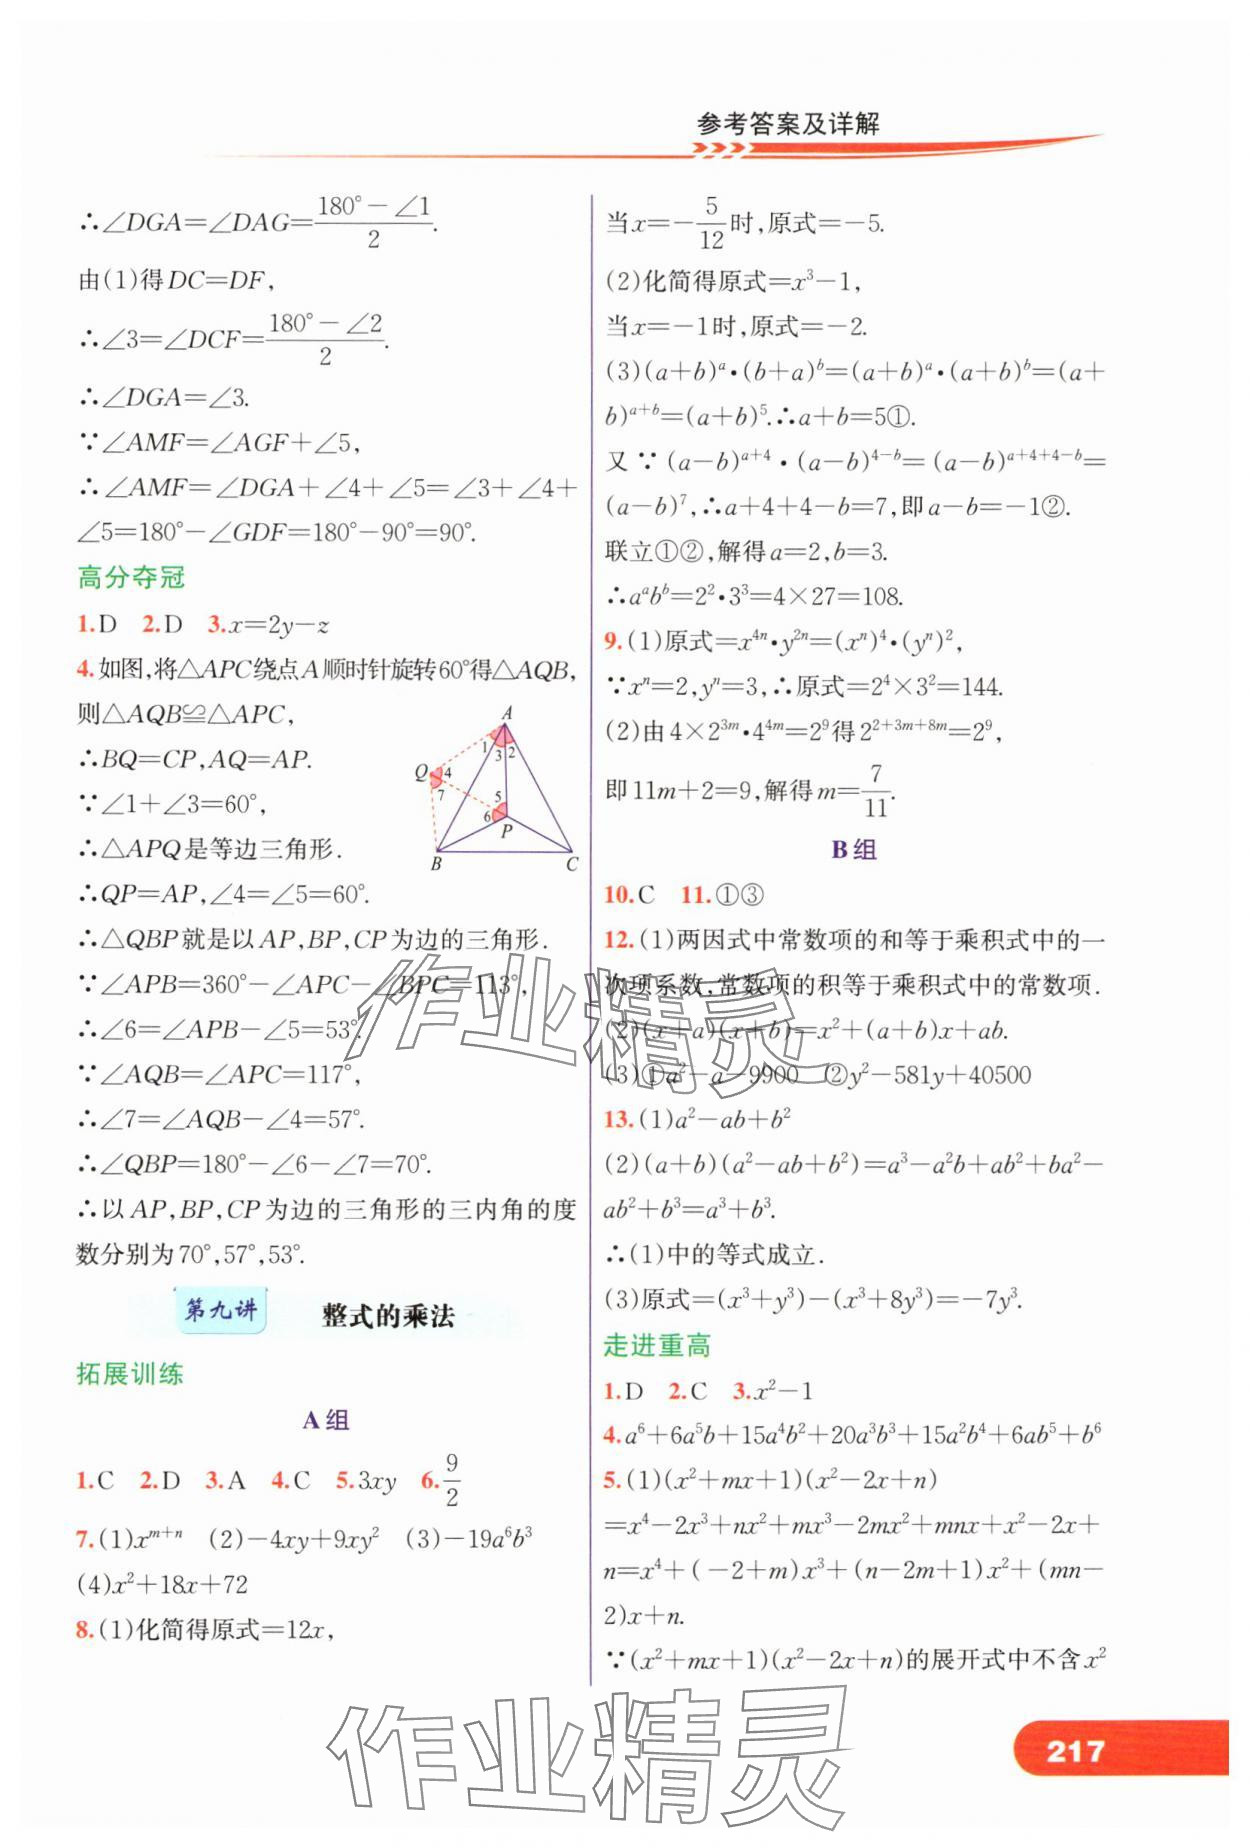 参考答案及详解
∴∠DGA=∠DAG=(180°-∠1)/2.
由(1)得DC=DF,
∴∠3=∠DCF=(180°-∠2)/2.
∴∠DGA=∠3.
∵∠AMF=∠AGF+∠5,
∴∠AMF=∠DGA+∠4+∠5=∠3+∠4+
∠5=180°-∠GDF=180°-90°=90°.
高分夺冠
1.D 2.D 3.x=2y-z
4.如图,将△APC绕点A顺时针旋转60°得△AQB,
则△AQB≌△APC,
∴BQ=CP,AQ=AP.
∵∠1+∠3=60°,
∴△APQ是等边三角形.
∴QP=AP,∠4=∠5=60°.
A
1 3 2
Q 4
7 5
6 P
B C
∴△QBP就是以AP,BP,CP为边的三角形.
∵∠APB=360°-∠APC-∠BPC=113°,
∴∠6=∠APB-∠5=53°.
∵∠AQB=∠APC=117°,
∴∠7=∠AQB-∠4=57°.
∴∠QBP=180°-∠6-∠7=70°.
∴以AP,BP,CP为边的三角形的三内角的度
数分别为70°,57°,53°.
第九讲 整式的乘法
拓展训练
A组
1.C 2.D 3.A 4.C 5.3xy 6.9/2
7.(1)x^(m+n) (2)-4xy+9xy² (3)-19a⁶b³
(4)x²+18x+72
8.(1)化简得原式=12x,
当x=-5/12时,原式=-5.
(2)化简得原式=x³-1,
当x=-1时,原式=-2.
(3)(a+b)^a•(b+a)^b=(a+b)^a•(a+b)^b=(a+
b)^(a+b)=(a+b)⁵.∴a+b=5①.
又∵(a-b)^(a+4)•(a-b)^(4-b)=(a-b)^(a+4+4-b)=
(a-b)⁷,∴a+4+4-b=7,即a-b=-1②.
联立①②,解得a=2,b=3.
∴a^a b^b=2²•3³=4×27=108.
9.(1)原式=x^(4n)•y^(2n)=(x^n)⁴•(y^n)²,
∵x^n=2,y^n=3,∴原式=2⁴×3²=144.
(2)由4×2^(3m)•4^(4m)=2⁹得2^(2+3m+8m)=2⁹,
即11m+2=9,解得m=7/11.
B组
10.C 11.①③
12.(1)两因式中常数项的和等于乘积式中的一
次项系数,常数项的积等于乘积式中的常数项.
(2)(x+a)(x+b)=x²+(a+b)x+ab.
(3)①a²-a-9900 ②y²-581y+40500
13.(1)a²-ab+b²
(2)(a+b)(a²-ab+b²)=a³-a²b+ab²+ba²-
ab²+b³=a³+b³.
∴(1)中的等式成立.
(3)原式=(x³+y³)-(x³+8y³)=-7y³.
走进重高
1.D 2.C 3.x²-1
4.a⁶+6a⁵b+15a⁴b²+20a³b³+15a²b⁴+6ab⁵+b⁶
5.(1)(x²+mx+1)(x²-2x+n)
=x⁴-2x³+nx²+mx³-2mx²+mnx+x²-2x+
n=x⁴+(-2+m)x³+(n-2m+1)x²+(mn-
2)x+n.
∵(x²+mx+1)(x²-2x+n)的展开式中不含x²
217
作业精灵
作业精灵